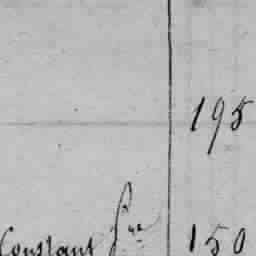 195
Constant Sne 150